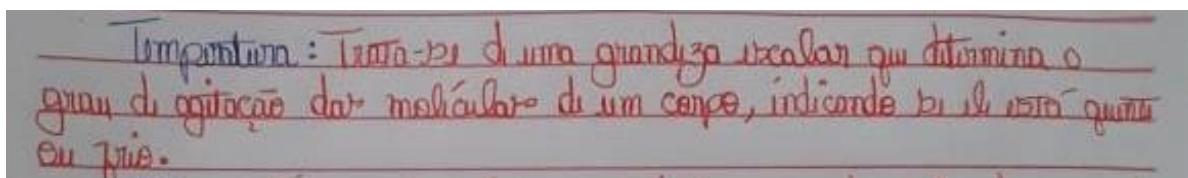 Temperatura: Trata-se de uma grandeza escalar que determina o
grau de agitação das moléculas de um corpo, indicando se ele está quente
ou frio.